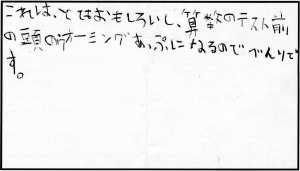 これは、とてもおもしろいし、算数のテスト前
の頭のウオーミングあっぷになるのでべんりで
す。